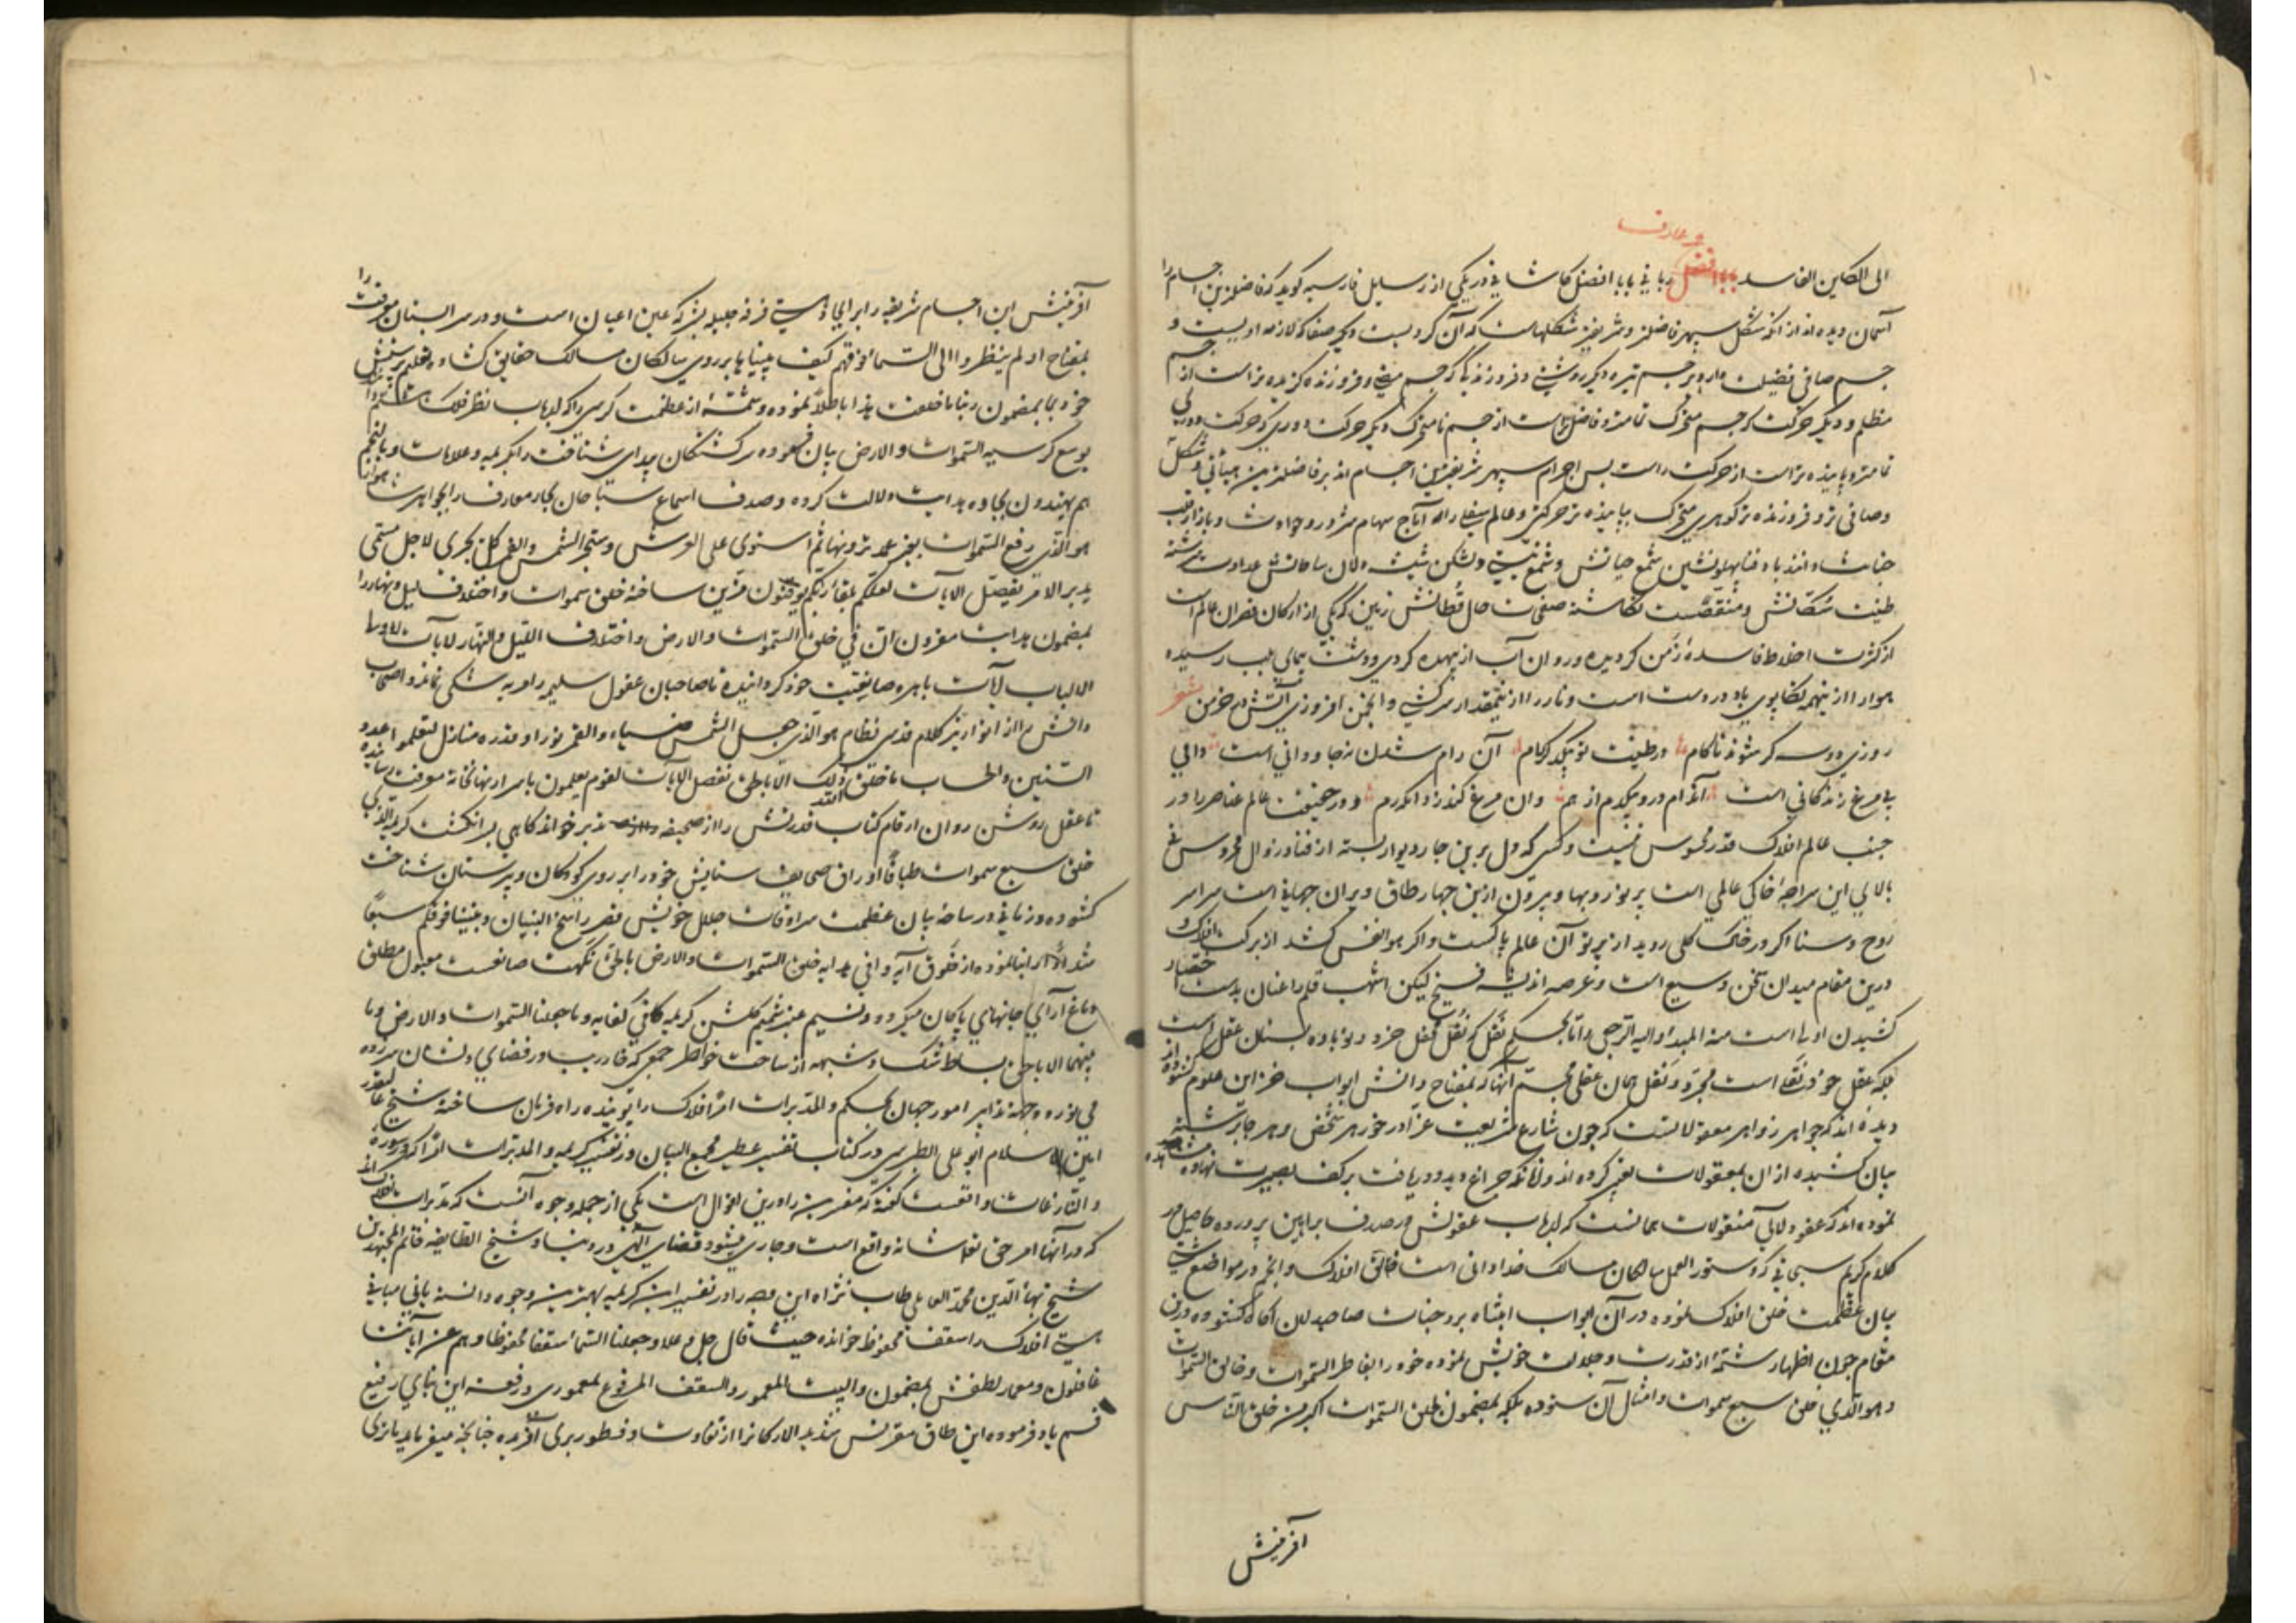 ۱۰
و عارف
الی الکاین الفاسد بابا افضل ربانی بابا افضل کاشانی در یکی از رسایل فارسیه کوید که فاضلترین اجسام را
آسمان دیده اند از آنکه شکل سپهر فاضلتر و شریفتر شکلهاست که آن کرویست و دیگر صفا که لازمه اویست و جسم
جسم صافی فضیلت دارد بر جسم تیره دیگر روشنی و فروزندگی که جسم مضی و فروزنده گزیده تر است از
مظلم و دیگر حرکت که جسم متحرک تمامتر و فاضلتر است از جسم نامتحرک دیگر حرکت دوری که حرکت دوری
تمامتر و پاینده تر است از حرکت راست پس اجرام سپهر شریفترین اجسام اند بر فاضلترین هیأتی و شکل
وصافی تر و فروزنده تر گوهری متحرک بپاینده تر حرکتی و عالم سفلی را که آماج سهام شرور و حوادث و بازار
طینت سکانش و منقصت نگاشته صفت حال قطانش زمین که یکی از ارکان قصران عالم است
از کثرت اخلاط فاسده زمن گردیده و روان آب از بیهده گردی و وقت پیمایی بلب رسیده
هوا را از اینهمه تکاپوی باد در دست است و نار را از اینمقدار سرکشی و انجمن افروزی آتش در خرمن شعر
روزی دوسه گر شود ناکام در طینت تو یکدگر رام آن رام شدن نه جاودانی است والی
بی مرغ زندگانی است آندام درو یکدم از هم وان مرغ گذرد از دم و در حقیقت عالم عناصر را در
جنب عالم افلاک قدر محسوس نیست و کسی که دل برین چار دیوار بسته از فنا و زوال محروس نی
بالای این سراچه خاکی عالمی است پر نور و بها و بیرون ازین چهار طاق ویران جهانی است سراسر
روح و سنا اگر در خاک گلی روید از پرتو آن عالم پاکست و اگر هوا نفس کشد از برکت افلاک
درین مقام میدان سخن وسیع است و عرصه اندیشه فسیح لیکن اشهب قلم را عنان بدست اختصار
کشیدن اولی است منه المبدأ و الیه الرجعی و اما بحکم نقل که نقل محفل خرد و نوباده بستان عقل است
بلکه عقل خود نقلی است مجرد و نقل همان عقلی مجسم آنها که بمفتاح دانش ابواب خزاین علوم گشوده اند
دیده اند که جواهر زواهر معقولاتست که چون شارع شریعت غرا در خور هر شخص و هر جا برشته
بیان کشیده از آن بمعقولات تعبیر کرده اند و آنانکه چراغ دیده دریافت بر کف بصیرت نهاده مشاهده
نموده اند که عقود لآلی منقولات همانست که ارباب عقولش در صدف براهین پرورده حاصل در
کلام کریم سبحانی که دستور العمل سالکان مسالک خدادانی است خالق افلاک و انجم در مواضع شتی
بیان عظمت خلق افلاک نموده در آن ابواب انتباه بر وجنات صاحبدلان آگاه گشوده درین
مقام چون اظهار شمّهٔ از قدرت و جلالت خویش نموده خود را بفاطر السموات و خالق السموات
و هو الذی خلق سبع سموات و امثال آن ستوده بلکه بمضمون لخلق السموات اکبر من خلق الناس
آفرینش
آفرینش این اجسام شریفه را بر ایجاد هستی فرقه جلیله بشر که عین اعیان است و در البستان معرفت را
بمفتاح او لم ینظروا الی السماء فوقهم کیف بنیناها بر روی سالکان مسالک حقایق گشاده
خود بمضمون ربنا ما خلقت هذا باطلاً نموده و شمّهٔ از عظمت کرسی را که ارباب نظر فلک
بوسع کرسیه السموات و الارض بیان فرموده سرگشتگان بیدای شناخت را بکریمه و علامات و بالنجم
هم یهتدون بجاده هدایت دلالت کرده و صدف اسماع سیاحان بحار معارف را بجواهر
هو الذی رفع السموات بغیر عمد ترونها ثم استوی علی العرش و سخر الشمس و القمر کل یجری لاجل مسمی
یدبر الامر یفصل الآیات لعلکم بلقاء ربکم توقنون مزین ساخته خلق سموات و اختلاف لیل و نهار را
بمضمون هدایت مقرون ان فی خلق السموات و الارض و اختلاف اللیل و النهار لآیات لاولی
الالباب آیات باهره صانعیت خود گردانیده تا صاحبان عقول سلیمه را و به شکی نماند و اصحاب
دانش را از انوار نیّر کلام قدسی نظام هو الذی جعل الشمس ضیاء و القمر نورا و قدره منازل لتعلموا عدد
السنین و الحساب ما خلق الله ذلک الا بالحق نفصل الآیات لقوم یعلمون باسرار نهانخانه معرفت رسانیده
تا عقل روشن روان ارقام کتاب قدرتش را از صحیفه تدبر خواند گاهی بسرانگشت کریمه الذی
خلق سبع سموات طباقاً اوراق صحایف ستایش خود را بر روی کودکان دبیرستان شناخت
گشوده و زمانی در ساحه بیان عظمت سرادقات جلال خویش قصر راسخ البنیان و بنینا فوقکم سبعاً
شداداً را بنا نموده از حقوق آیه وافی هدایه خلق السموات و الارض بالحق نکهت صانعیت معبود مطلق
دماغ آرای جانهای پاکان میگردد و نسیم عنبر شمیم گلشن کریمه کافی کفایه و ما خلقنا السموات و الارض و ما
بینهما الا بالحق بساط شک و شبهه از ساحت خواطر جمعی که خار ریب در فضای دلشان سر زده
می نوردد و جمله تدابیر امور جهان بحکم و المدبرات امراً افلاک را پوینده راه فرمان ساخته شیخ عالیقدر
امین الاسلام ابو علی الطبرسی در کتاب تفسیر عطیر مجمع البیان در تفسیر کریمه و المدبرات امراً که در سوره
و النازعات واقعست گفته که مفسرین را درین اقوال است یکی از جمله وجوه آنست که مدبرات افلاک اند
که در آنها امر حق تعالی شانه واقع است و جاری میشود قضای الهی در دنیا و شیخ الطایفه خاتم المجتهدین
شیخ بهاء الدین محمد العاملی طاب ثراه این وجه را در تفسیر این کریمه بهترین وجوه دانسته بانی مبانی
هستی افلاک را سقف محفوظ خوانده حیث قال جل و علا و جعلنا السماء سقفا محفوظا و هم عن آیاتنا
غافلون و معمار لطفش بمضمون و البیت المعمور و السقف المرفوع بمعموری و رفعت این بنای رفیع
قسم یاد فرموده این طاق مقرنس شدید الارکانرا از تفاوت و فطور بری آفریده چنانچه میفرماید ما تری